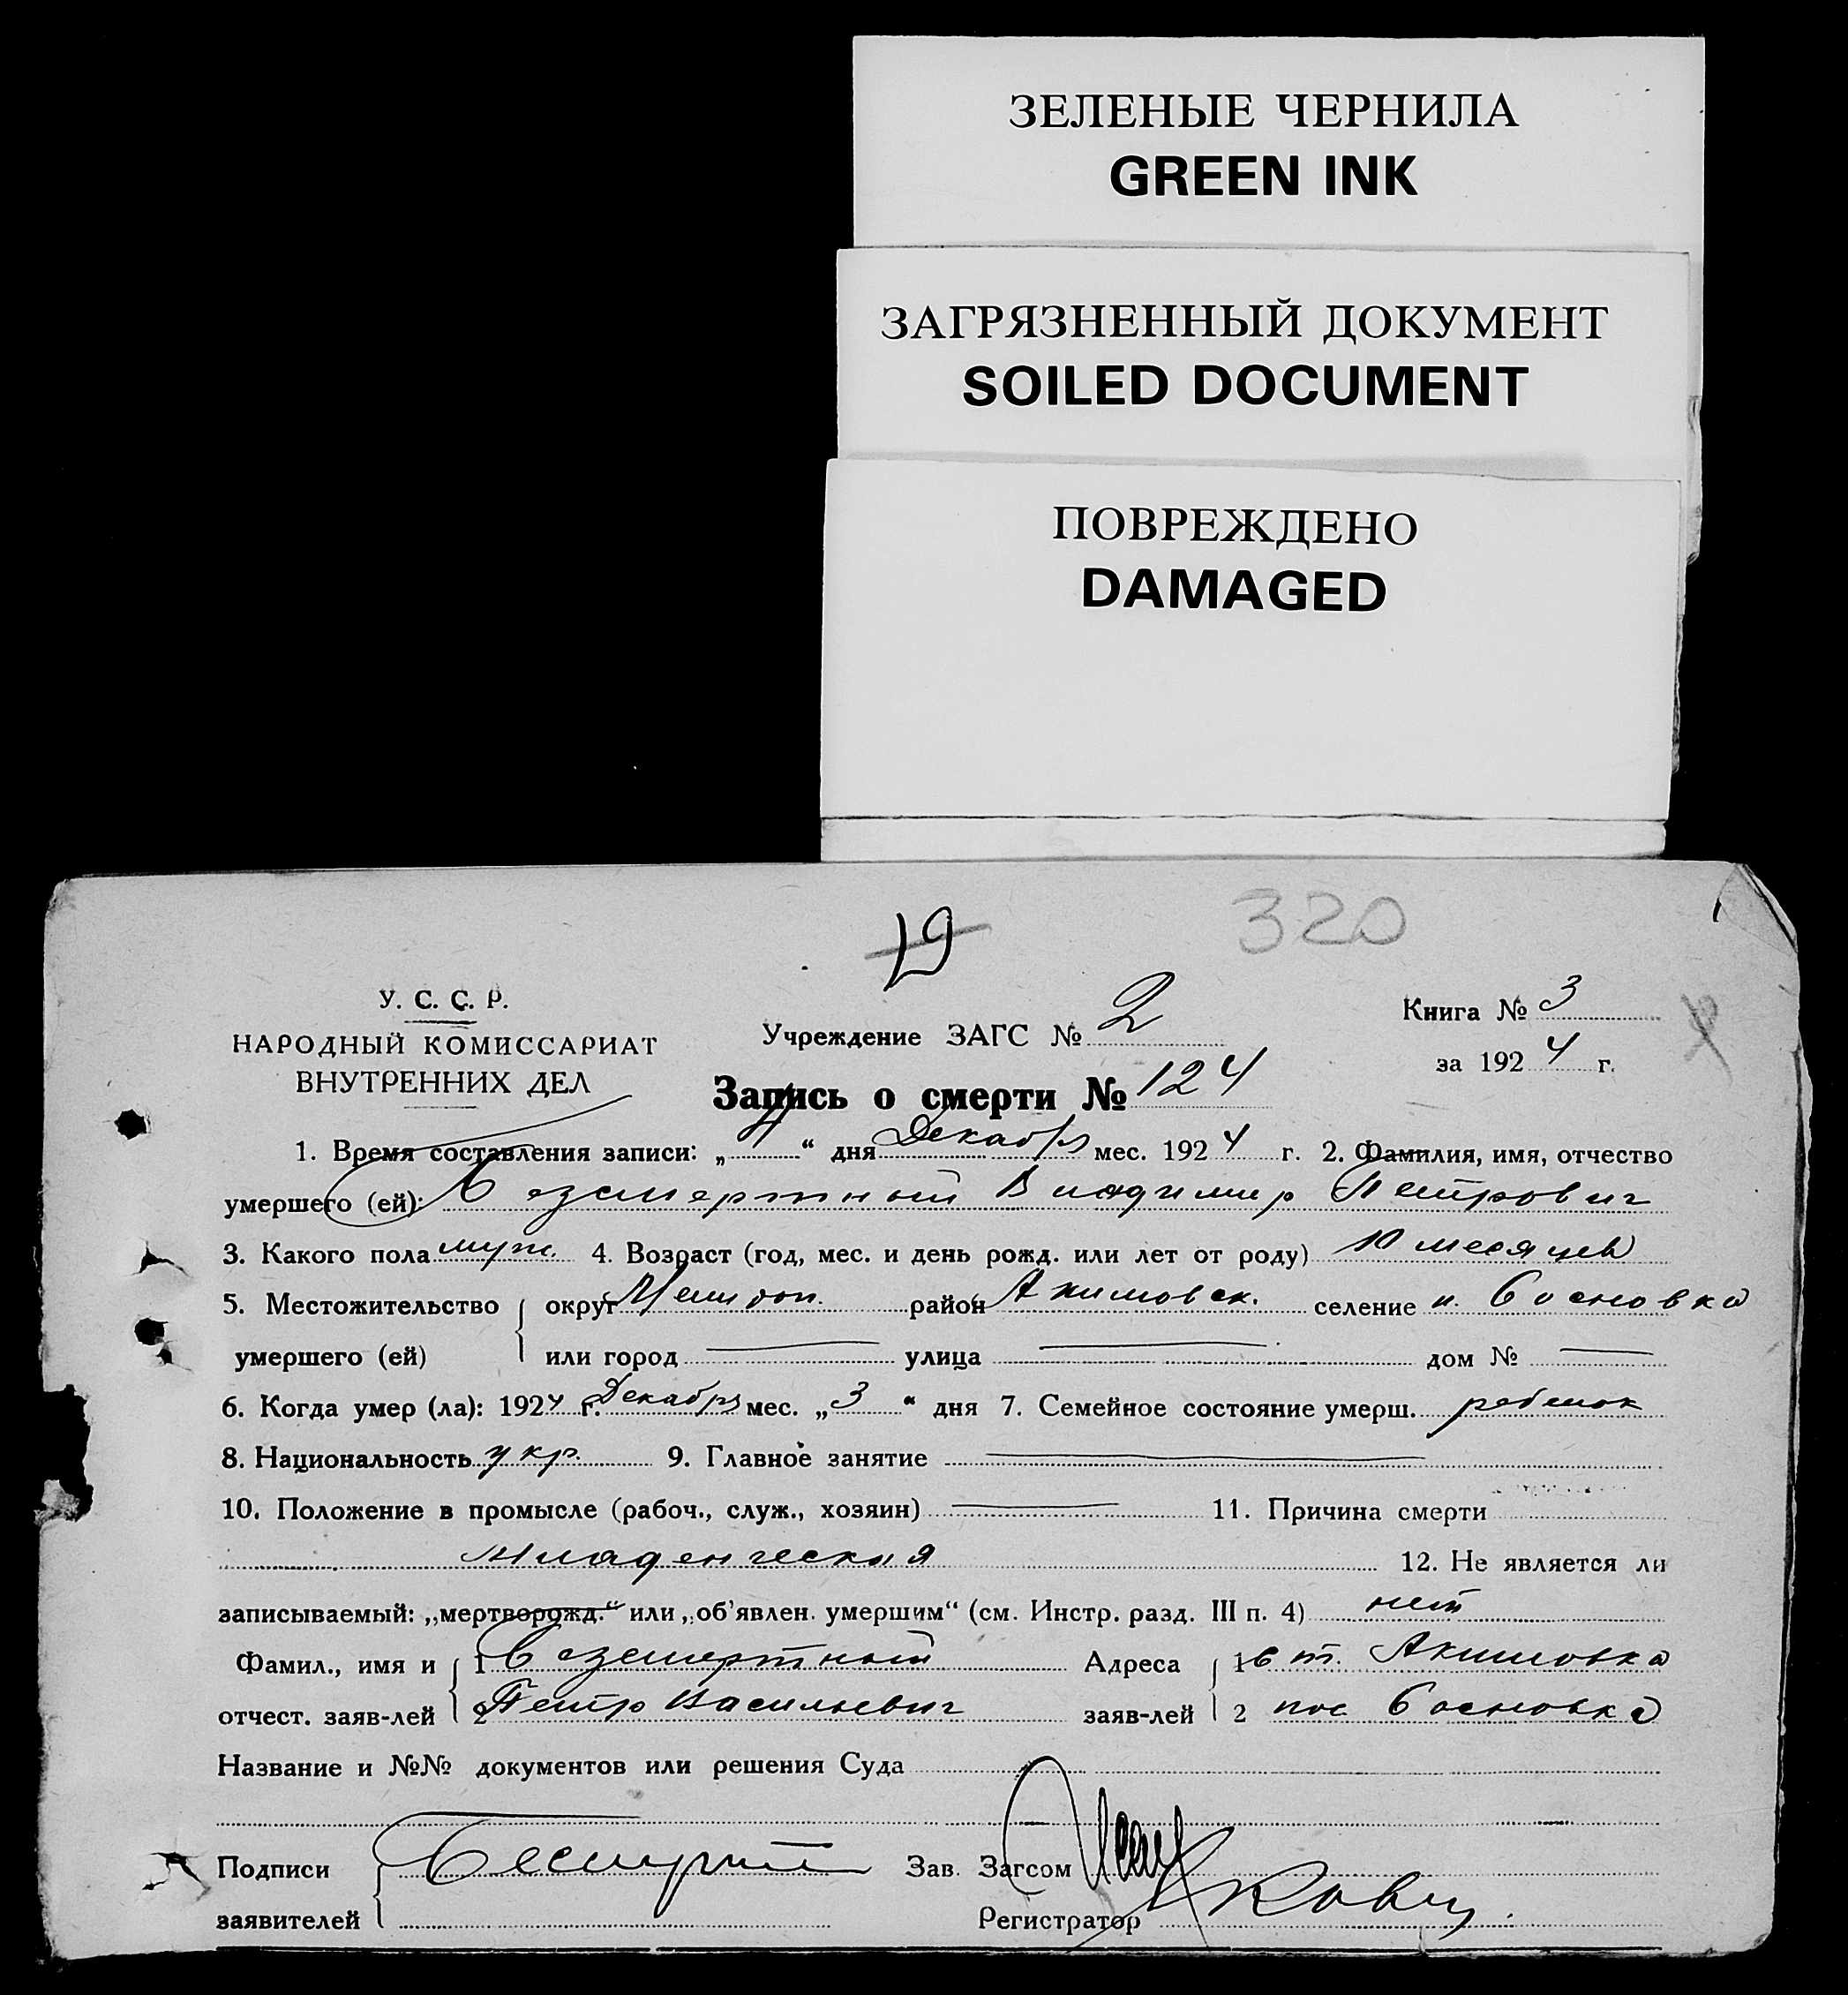 ЗЕЛЕНЫЕ ЧЕРНИЛА
GREEN INK
ЗАГРЯЗНЕННЫЙ ДОКУМЕНТ
SOILED DOCUMENT
ПОВРЕЖДЕНО
DAMAGED
19 320
У. С. С. Р.
НАРОДНЫЙ КОМИССАРИАТ
ВНУТРЕННИХ ДЕЛ
Учреждение ЗАГС № 2
Запись о смерти № 124
Книга № 3
за 1924 г.
1. Время составления записи: „4“ дня Декабря мес. 1924 г. 2. Фамилия, имя, отчество
умершего (ей): Безсмертный Владимир Петрович
3. Какого пола муж. 4. Возраст (год, мес. и день рожд. или лет от роду) 10 месяцев
5. Местожительство округ Мелитоп. район Акимовск. селение п. Сосновка
умершего (ей) или город улица дом №
6. Когда умер (ла): 1924 г. Декабря мес. „3“ дня 7. Семейное состояние умерш. ребенок
8. Национальность укр. 9. Главное занятие
10. Положение в промысле (рабоч., служ., хозяин) 11. Причина смерти
младенческая 12. Не является ли
записываемый: „мертворожд.“ или „об'явлен. умершим“ (см. Инстр. разд. III п. 4) нет
Фамил., имя и 1 Безсмертный Адреса 1 ст. Акимовка
отчест. заяв-лей 2 Петр Васильевич заяв-лей 2 пос. Сосновка
Название и №№ документов или решения Суда
Подписи Зав. Загсом
заявителей Регистратор